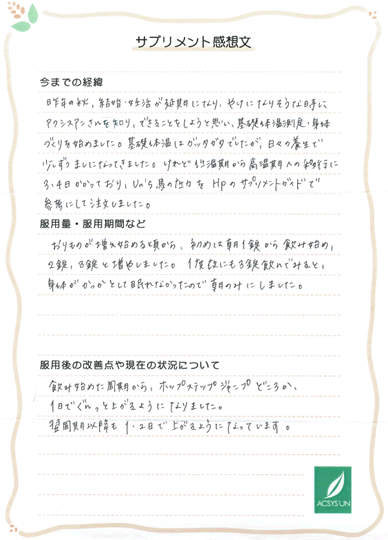 サプリメント感想文
今までの経緯
昨年の秋、結婚・妊活が延期になり、やけになりそうな日々に
アクシスアンさんを知り、できることをしようと思い、基礎体温測定・身体
づくりを始めました。基礎体温はガッタガタでしたが、日々の養生で
少しずつましになってきました。けれど低温期から高温期への移行に
3、4日かかっており、 Hpのサプリメントガイドで
参考にして注文しました。
服用量・服用期間など
おりものが増え始める頃から、初めは朝1錠から飲み始め、
2錠、3錠と増やしました。1度夜にも3錠飲んでみると、
身体がカッカとして眠れなかったので朝のみにしました。
服用後の改善点や現在の状況について
飲み始めた周期から、ホップステップジャンプどころか、
1日でぐんっと上がるようになりました。
翌周期以降も1、2日で上がるようになっています。
ACSYSUN